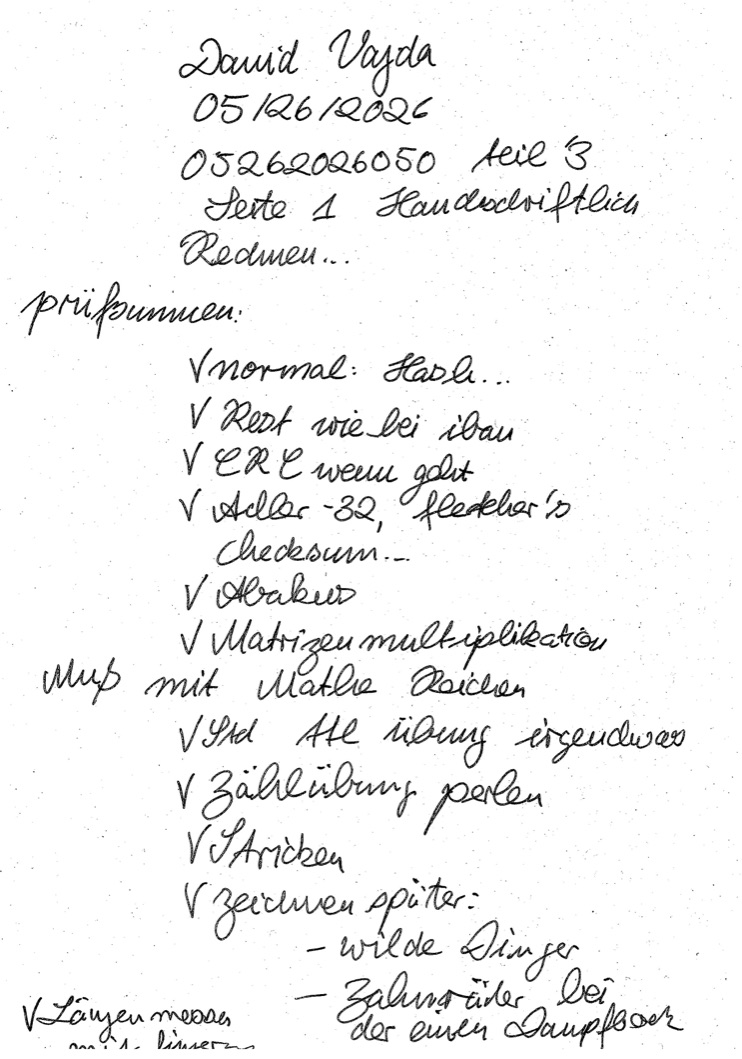 David Vajda
05/26/2026
05262026050 teil 3
Seite 1 Handschriftlich
Rechnen...
prüfsummen:
√ normal: Hash...
√ Rest wie bei iban
√ CRC wenn geht
√ Adler-32, fletcher's
checksum...
√ Abakus
√ Matrizenmultiplikation
Muß mit Mathe Reichen
√ Std AtE übung irgendwas
√ Zählübung perlen
√ Stricken
√ zeichnen später:
- wilde Dinger
- Zahnräder bei
der einen Dampfbock
√ Längen messen
mit